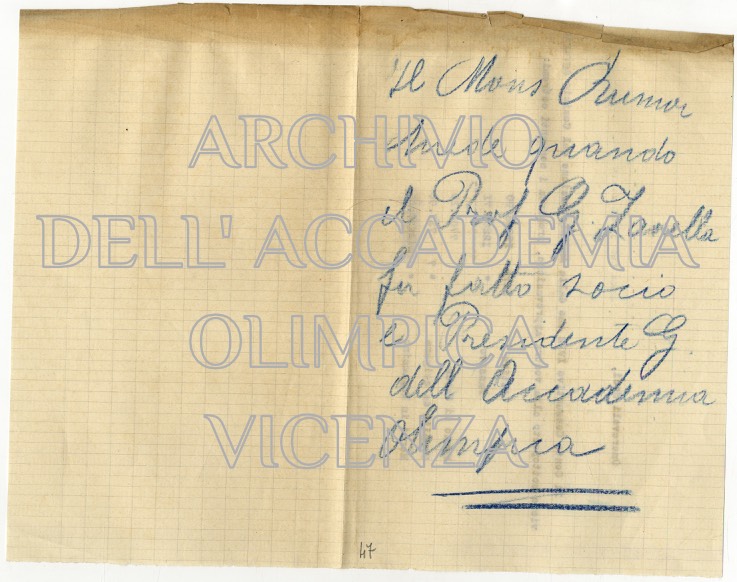 Il Mons Rumor
quando
il Prof G. Zanella
fu fatto socio
e Presidente G.
dell Accademia
Olimpica
47
ARCHIVIO
DELL' ACCADEMIA
OLIMPICA
VICENZA